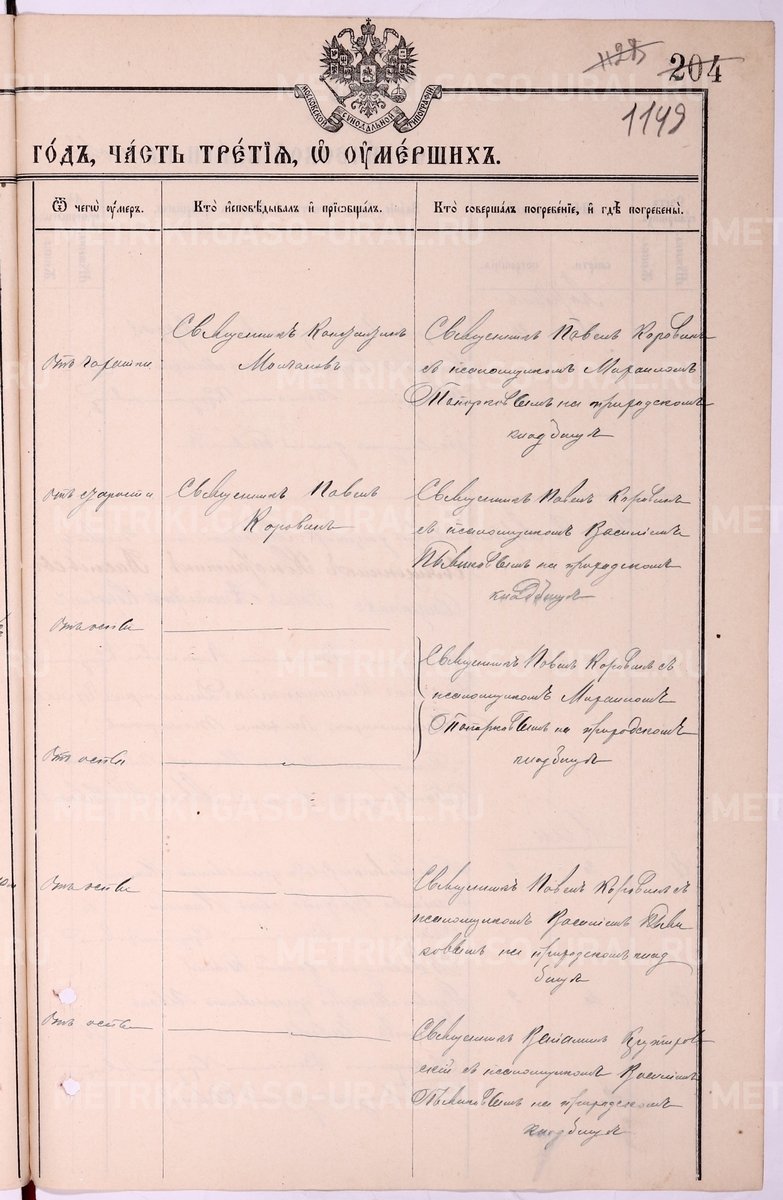 1128
204
1149
МОСКОВСКОЙ СѴНОДАЛЬНОЙ ТИПОГРАФІИ
ГО́ДЪ, ЧА́СТЬ ТРЕ́ТІѦ, Ѡ҆ ОУ҆МЕ́РШИХЪ.
Ѿ чегѡ̀ ᲂу҆́меръ.
Кто̀ и҆сповѣ́дывалъ и҆ прїѡбща́лъ.
Кто̀ соверша́лъ погребе́нїе, и҆ гдѣ̀ погребены̀.
Отъ горячки
Священникъ Константинъ
Молчановъ
Священникъ Павелъ Коровинъ
съ псаломщикомъ Михаиломъ
Топорковымъ на приходскомъ
кладбищѣ
Отъ старости
Священникъ Павелъ
Коровинъ
Священникъ Павелъ Коровинъ
съ псаломщикомъ Василіемъ
на приходскомъ
кладбищѣ
Отъ оспы
Священникъ Павелъ Коровинъ съ
псаломщикомъ Михаиломъ
Топорковымъ на приходскомъ
кладбищѣ
Отъ оспы
Отъ оспы
Священникъ Павелъ Коровинъ съ
псаломщикомъ Василіемъ
ковымъ на приходскомъ клад
бищѣ
Отъ оспы
Священникъ
скій съ псаломщикомъ Василіемъ
на приходскомъ
кладбищѣ
METRIKI.GASO-URAL.RU